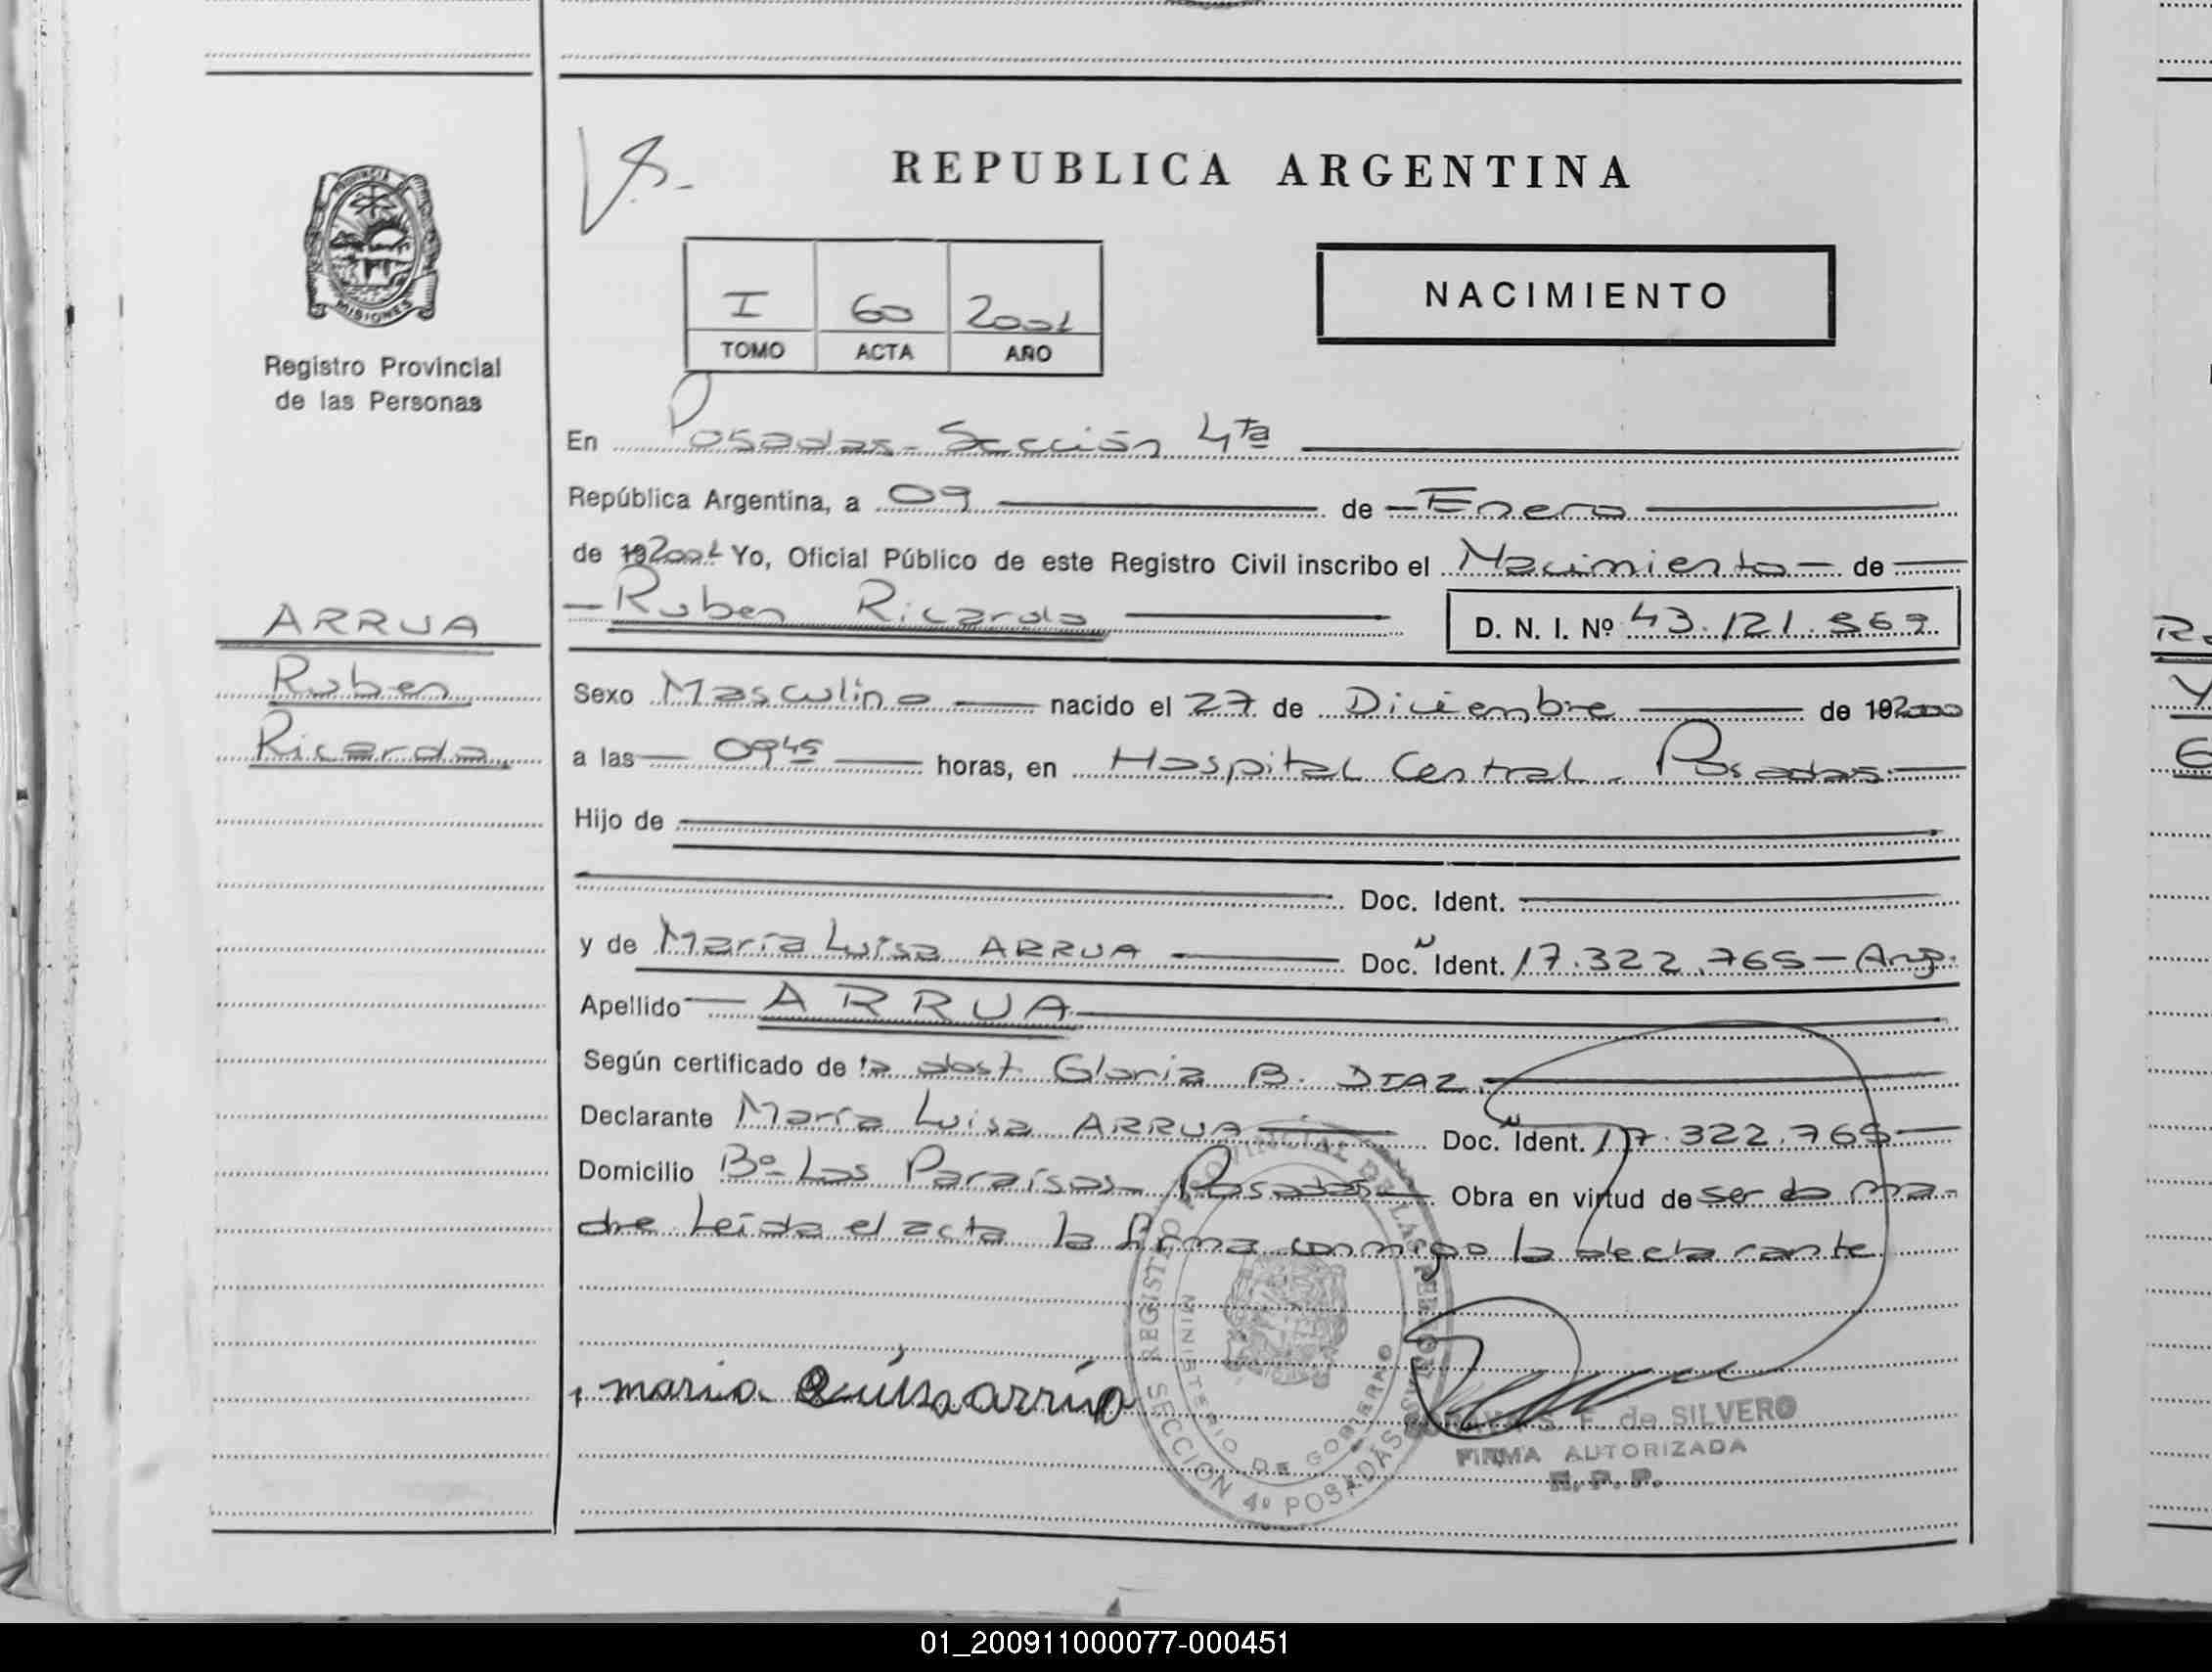 REPUBLICA ARGENTINA
PROVINCIA
MISIONES
Registro Provincial
de las Personas
NACIMIENTO
I 60 2001
TOMO ACTA AÑO
En Posadas - Sección 4ta
República Argentina, a 09 de Enero
de 192001 Yo, Oficial Público de este Registro Civil inscribo el Nacimiento de
Ruben Ricardo D. N. I. Nº 43.121.869
ARRUA
Ruben
Ricardo
Sexo Masculino nacido el 27 de Diciembre de 192000
a las 09 45 horas, en Hospital Central - Posadas
Hijo de
Doc. Ident.
y de María Luisa ARRUA Doc. Ident. 17.322.765 - Arg.
Apellido ARRUA
Según certificado de la obst. Gloria B. DIAZ
Declarante María Luisa ARRUA Doc. Ident. 17.322.765
Domicilio Bº Los Paraísos - Posadas Obra en virtud de ser la ma-
dre Leída el acta la firma conmigo la declarante
maria Luisa arrúa
REGISTRO PROVINCIAL DE LAS PERSONAS
MINISTERIO DE GOBIERNO
SECCION 4º POSADAS
S. F. de SILVERO
FIRMA AUTORIZADA
R. P. P.
01_200911000077-000451